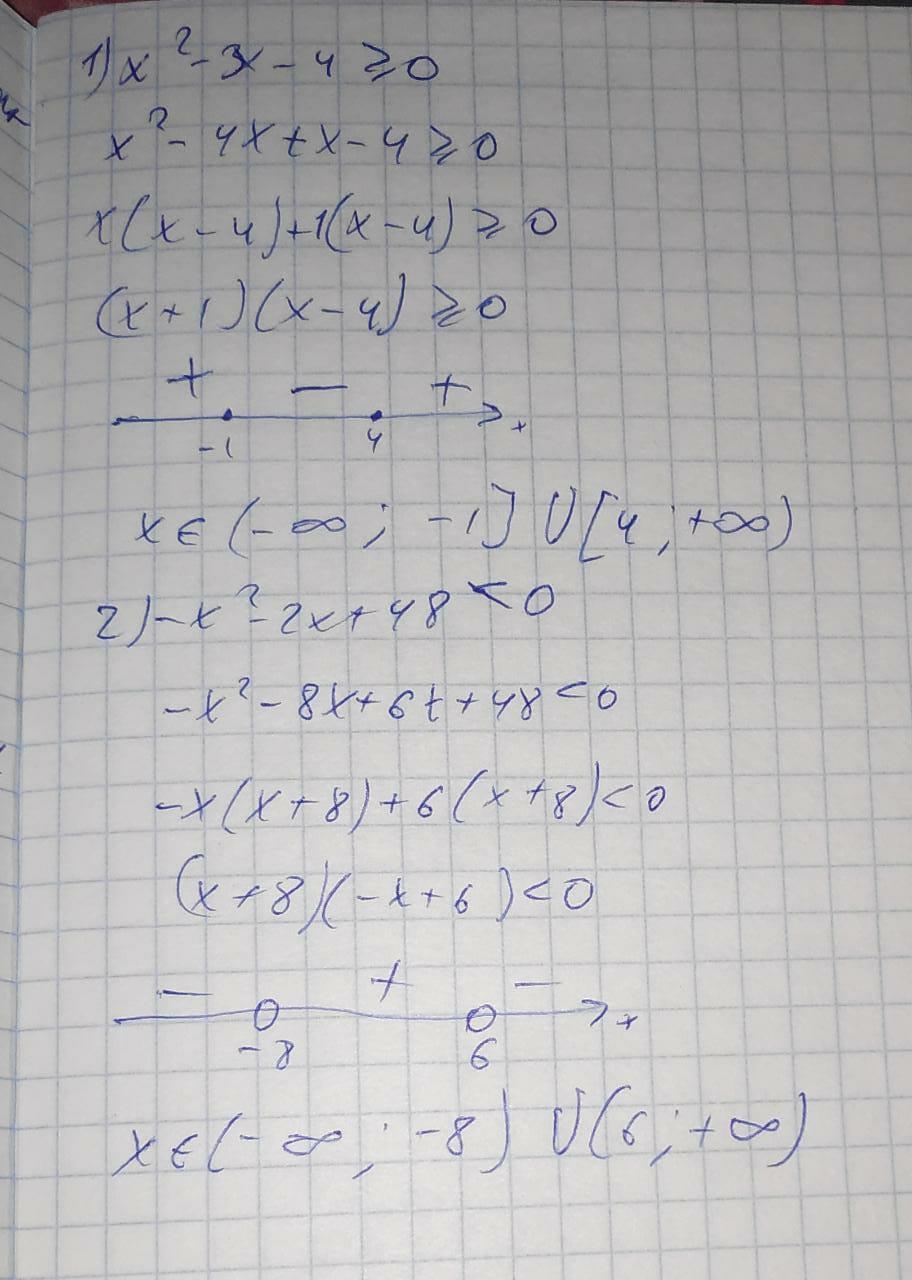 1) x² - 3x - 4 ≥ 0
x² - 4x + x - 4 ≥ 0
x(x - 4) + 1(x - 4) ≥ 0
(x + 1)(x - 4) ≥ 0
+ — +
-1 4 x
x ∈ (-∞; -1] ∪ [4; +∞)
2) -x² - 2x + 48 < 0
-x² - 8x + 6x + 48 < 0
-x(x + 8) + 6(x + 8) < 0
(x + 8)(-x + 6) < 0
— + —
-8 6 x
x ∈ (-∞; -8) ∪ (6; +∞)